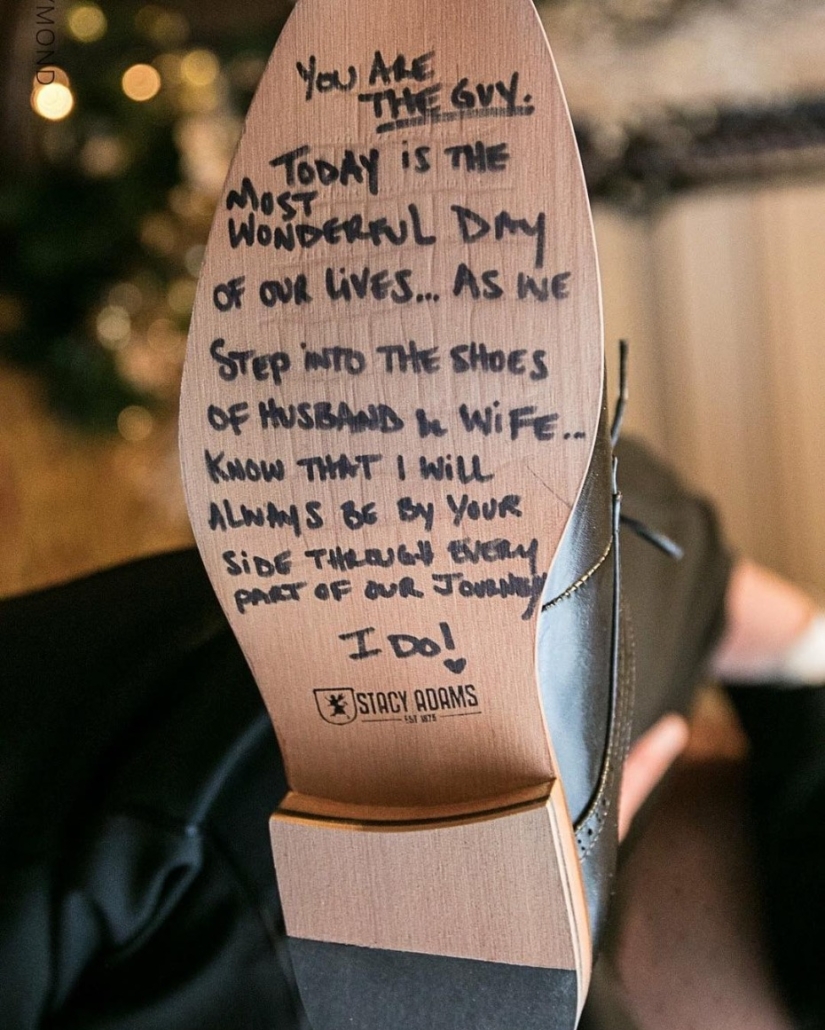 YMOND
YOU ARE
THE GUY.
TODAY iS THE
MOST
WONDERFUL DAY
OF OUR LiVES... AS WE
STEP iNTO THE SHOES
OF HUSBAND & WiFE...
KNOW THAT I WiLL
ALWAYS BE BY YOUR
SiDE THROUGH EVERY
PART OF OUR JOURNEY
I DO!
STACY ADAMS
EST 1875